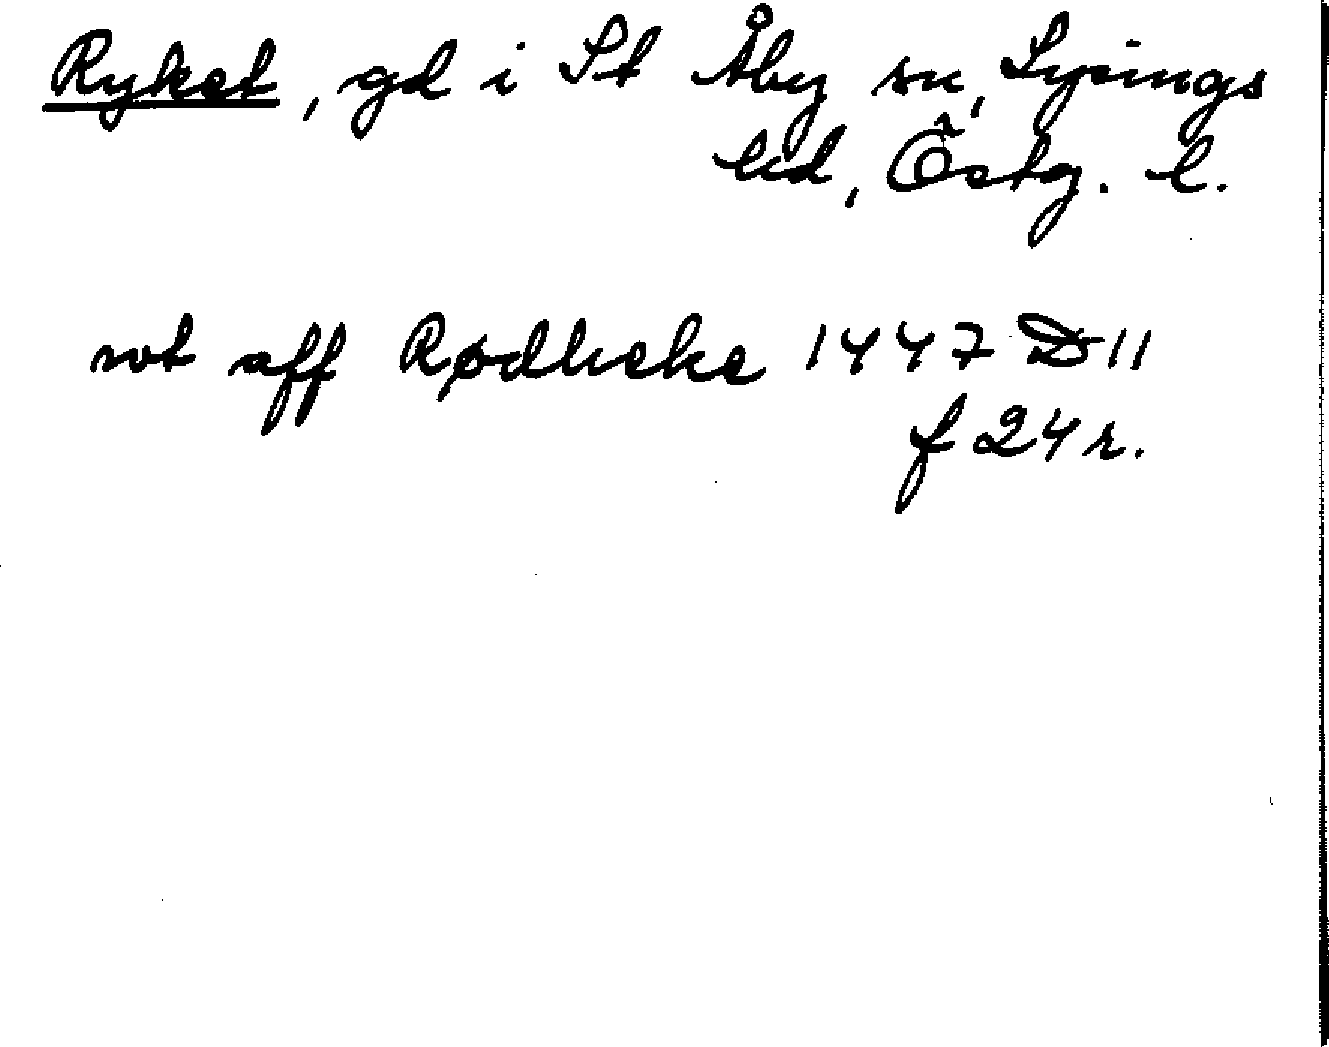 Ryket, gd i St Åby sn, Lysings
hd, Östg. l.
wt aff Rødheke 1447 D 11
f 24 r.